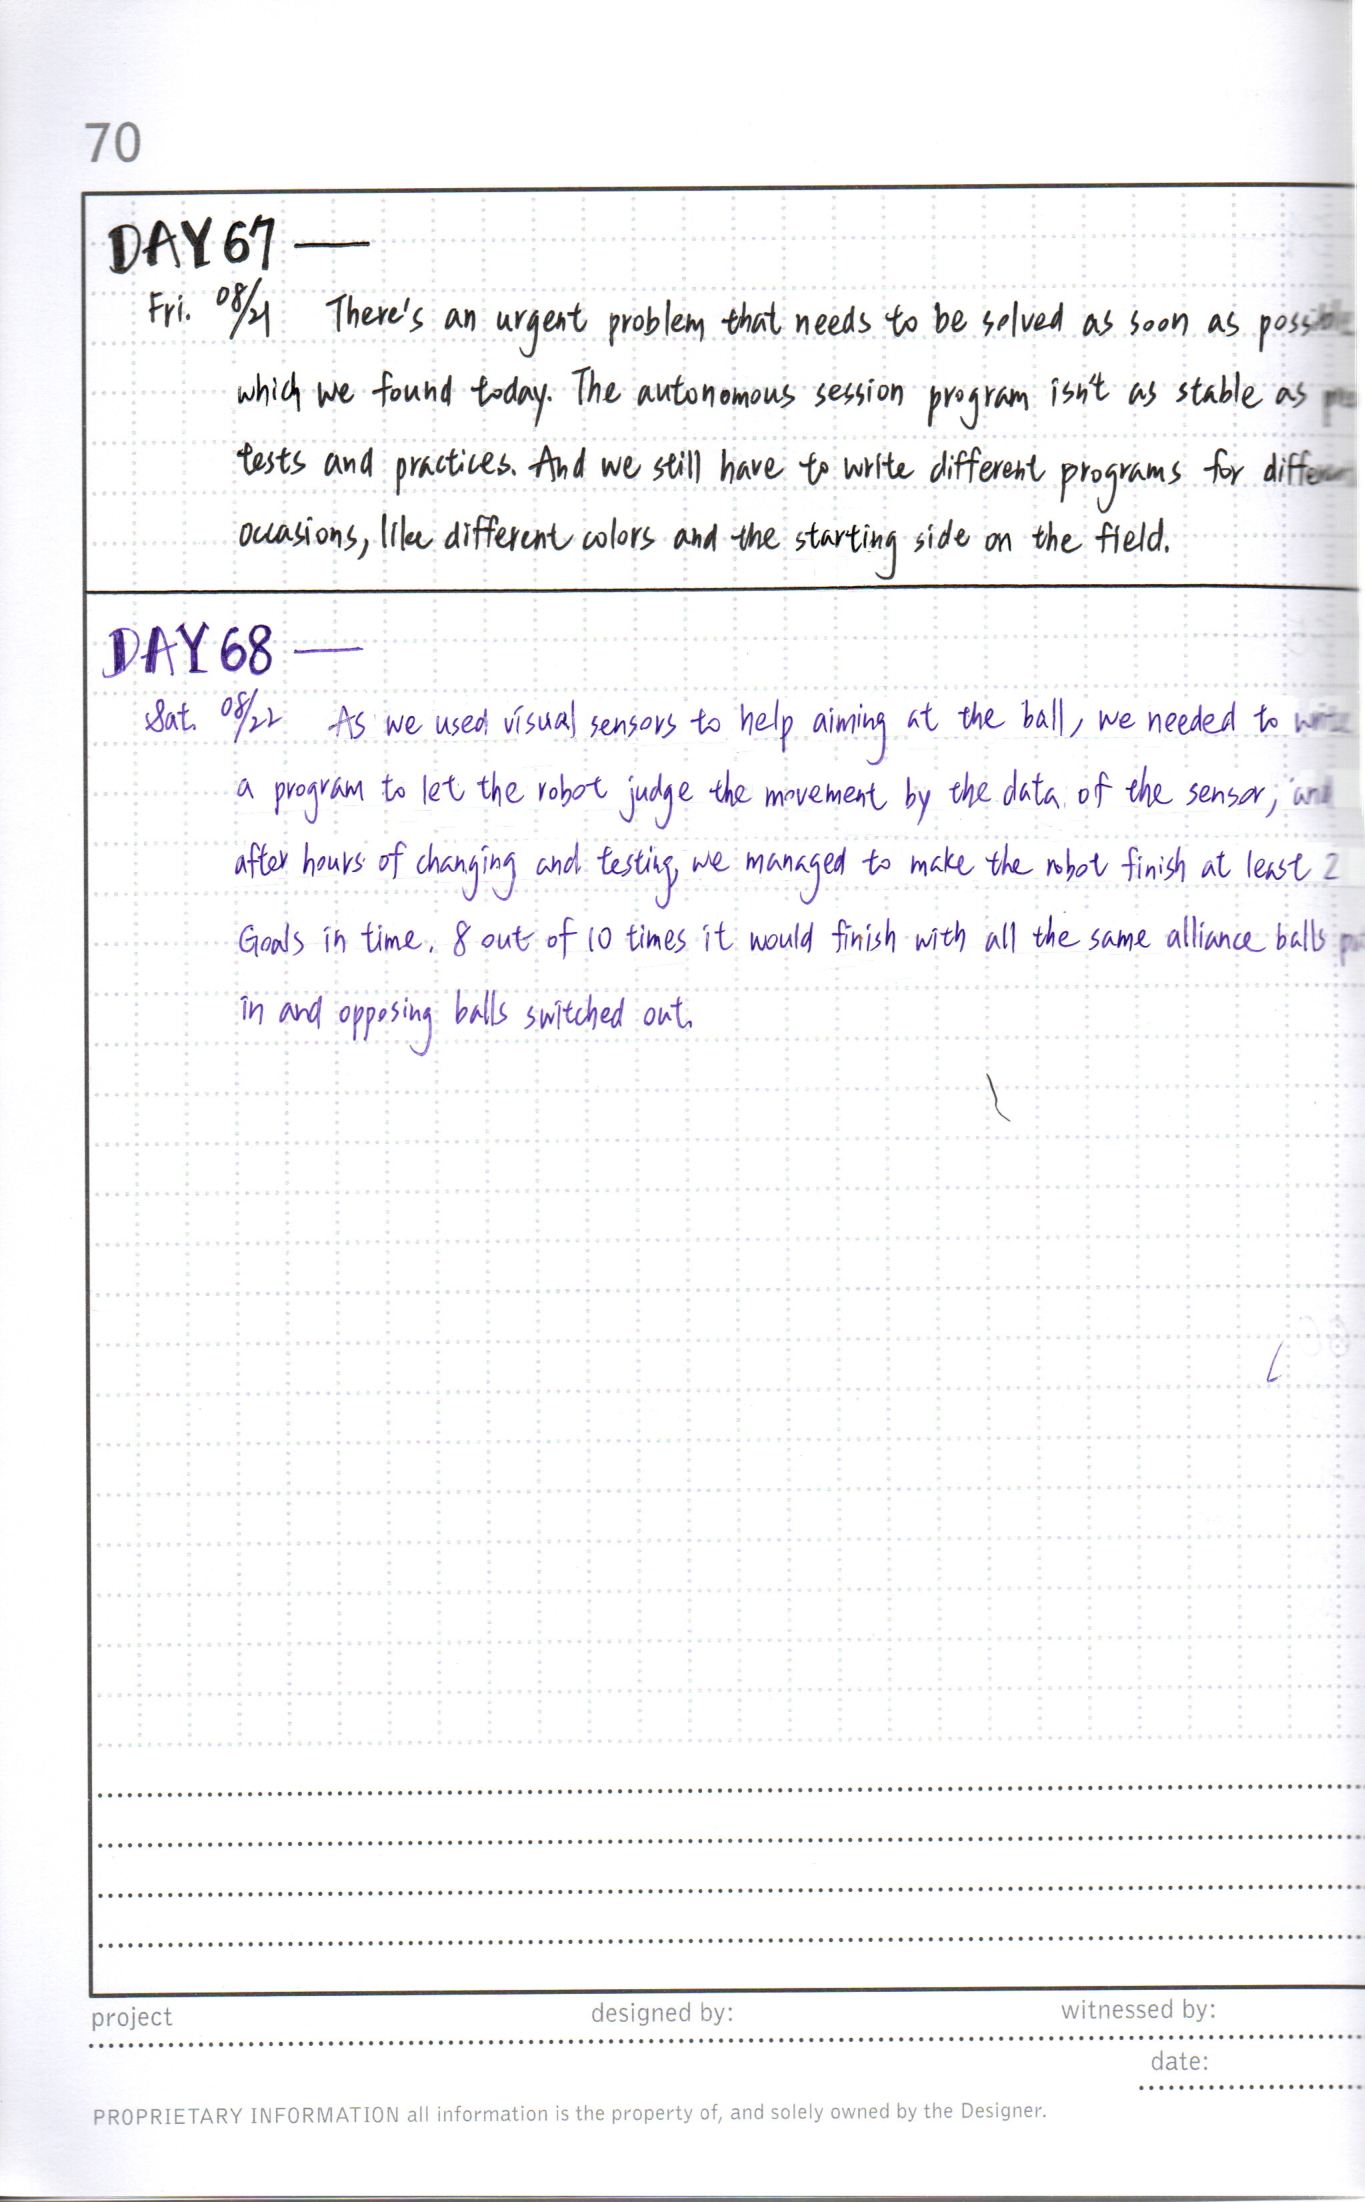 70
DAY 67 —
Fri. 08/21 There's an urgent problem that needs to be solved as soon as possible
which we found today. The autonomous session program isn't as stable as
tests and practices. And we still have to write different programs for different
occasions, like different colors and the starting side on the field.
DAY 68 —
Sat. 08/22 As we used visual sensors to help aiming at the ball, we needed to write
a program to let the robot judge the movement by the data of the sensor, and
after hours of changing and testing, we managed to make the robot finish at least 2
Goals in time. 8 out of 10 times it would finish with all the same alliance balls
in and opposing balls switched out.
project designed by: witnessed by:
date:
PROPRIETARY INFORMATION all information is the property of, and solely owned by the Designer.